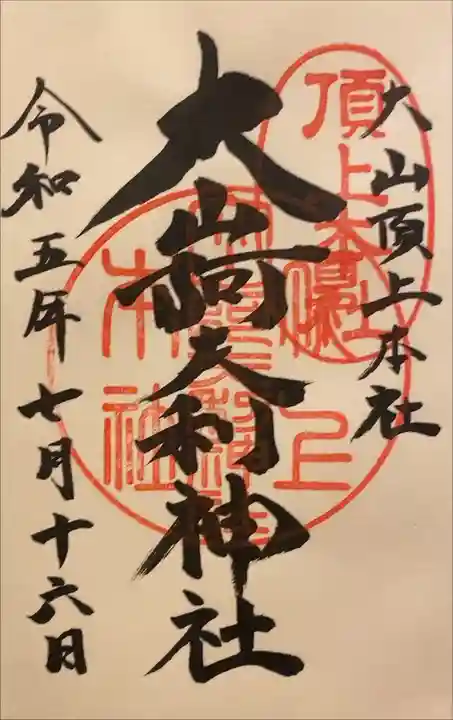 大山頂上本社
大山阿夫利神社
令和五年七月十六日
頂上
本社
上